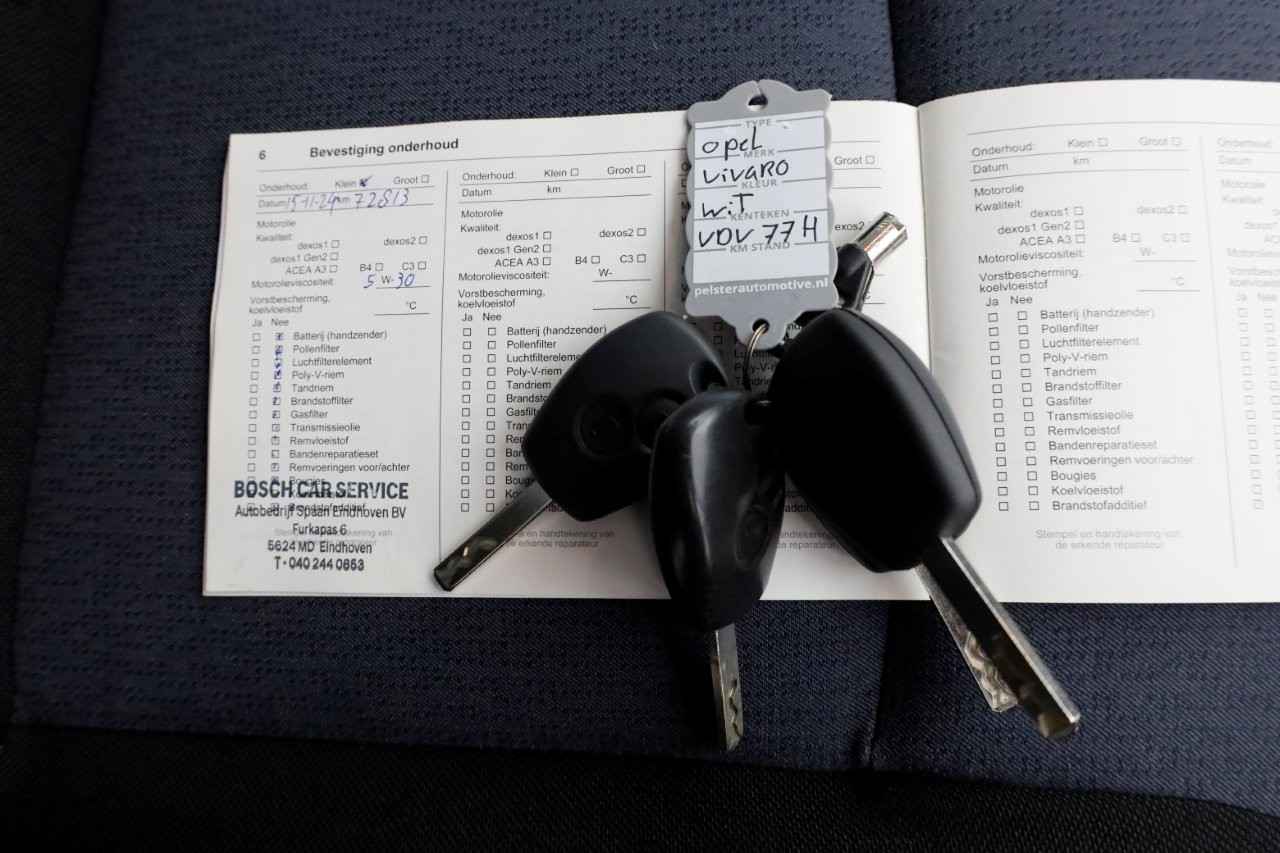 6 Bevestiging onderhoud
Onderhoud: Klein Groot
Datum 15-11-24 km 72813
Motorolie
Kwaliteit:
dexos1 dexos2
dexos1 Gen2
ACEA A3 B4 C3
Motorolieviscositeit: 5 W-30
Vorstbescherming,
koelvloeistof °C
Ja Nee
Batterij (handzender)
Pollenfilter
Luchtfilterelement
Poly-V-riem
Tandriem
Brandstoffilter
Gasfilter
Transmissieolie
Remvloeistof
Bandenreparatieset
Remvoeringen voor/achter
Bougies
Koelvloeistof
Brandstofadditief
BOSCH CAR SERVICE
Autobedrijf Spaan Eindhoven BV
Furkapas 6
5624 MD Eindhoven
T · 040 244 0853
Onderhoud: Klein Groot
Datum km
Motorolie
Kwaliteit:
dexos1 dexos2
dexos1 Gen2
ACEA A3 B4 C3
Motorolieviscositeit: W-
Vorstbescherming,
koelvloeistof °C
Ja Nee
Batterij (handzender)
Pollenfilter
Poly-V-riem
Tandriem
handtekening van
erkende reparateur
TYPE
Opel
MERK
Vivaro
KLEUR
Wit
KENTEKEN
VDV 77 H
KM STAND
pelsterautomotive.nl
Groot
Onderhoud: Klein Groot
Datum km
Motorolie
Kwaliteit:
dexos1 dexos2
dexos1 Gen2
ACEA A3 B4 C3
Motorolieviscositeit: W-
Vorstbescherming,
koelvloeistof °C
Ja Nee
Batterij (handzender)
Pollenfilter
Luchtfilterelement
Poly-V-riem
Tandriem
Brandstoffilter
Gasfilter
Transmissieolie
Remvloeistof
Bandenreparatieset
Remvoeringen voor/achter
Bougies
Koelvloeistof
Brandstofadditief
Stempel en handtekening van
de erkende reparateur
Onderhoud:
Datum
Motorolie
Kwaliteit:
Ja